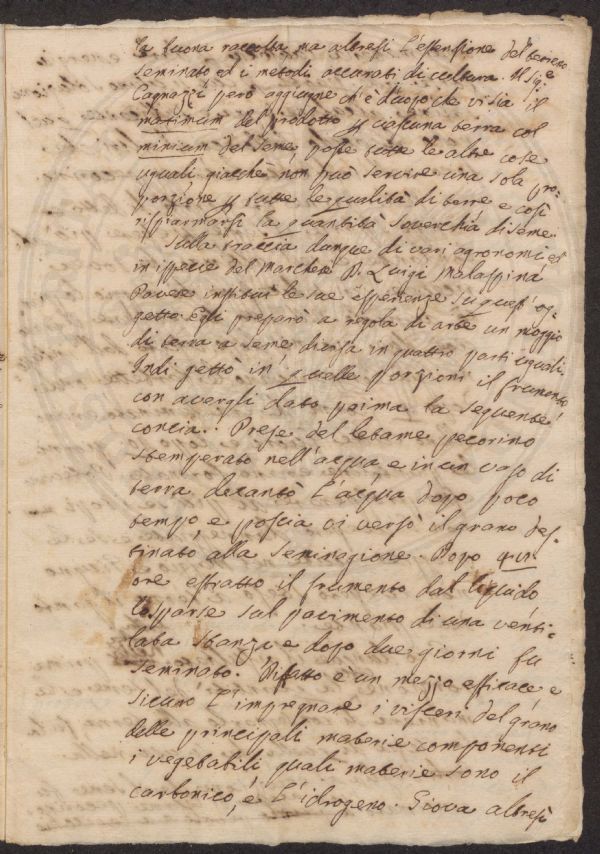 la buona raccolta ma altresì l'estensione del terreno
seminato ed i metodi accurati di cultura. Il Sig.e
Cagnazzi però aggiugne ch'è d'uopo che vi sia il
maximum del prodotto p ciascuna terra col
minium del seme, poste tutte le altre cose
uguali giacchè non può servire una sola pro-
porzione p tutte le qualità di terre e così
risparmarsi la quantità soverchia di seme.
Sulla traccia dunque di vari agronomi ed
in ispecie del Marchese D. Luigi Malaspina
Pavese instituì le sue esperienze su quest'og-
getto. Egli preparò a regola di arte un moggio
di terra a seme divisa in quattro parti uguali.
Indi gettò in quelle porzioni il frumento
con avergli dato prima la seguente
concia. Prese del letame pecorino
stemperato nell'acqua e in un vaso di
terra decantò l'acqua dopo poco
tempo, e poscia vi versò il grano des-
tinato alla seminagione. Dopo
ore estratto il frumento dal liquido
lo sparse sul pavimento di una venti-
lata stanza e dopo due giorni fu
seminato. Difatto è un mezzo efficace e
sicuro l'impregnare i visceri del grano
delle principali materie componenti
i vegetabili quali materie sono il
carbonico, e l'idrogeno. Giova altresì